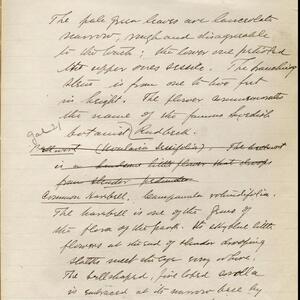 The pale green leaves are lanceolate
narrow, rough and disagreeable
to the touch; the lower one petioled
the upper ones sessile. The branching
stem is from one to two feet
in height. The flower commemorates
the name of the famous Swedish
botanist Rudbeck.
Bellwort (Uvularia Sessifolia). The bellwort
is a handsome little flower that droops
from slender peduncles.
Common Harebell. Campanula rotundifolia.
The harebell is one of the gems
of the flora of the park. Its sky blue little
flowers at the end of slender drooping
stalks meet the eye every where.
The bell shaped, five lobed corolla
is embraced at its narrow base by